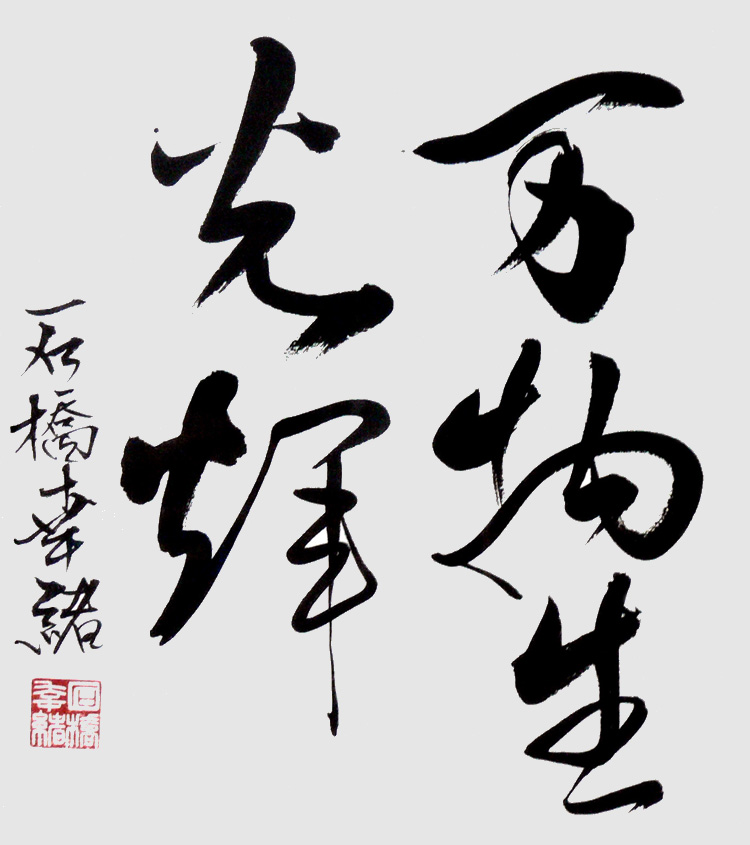 万物生
光輝
石橋幸緒
石橋
幸緒